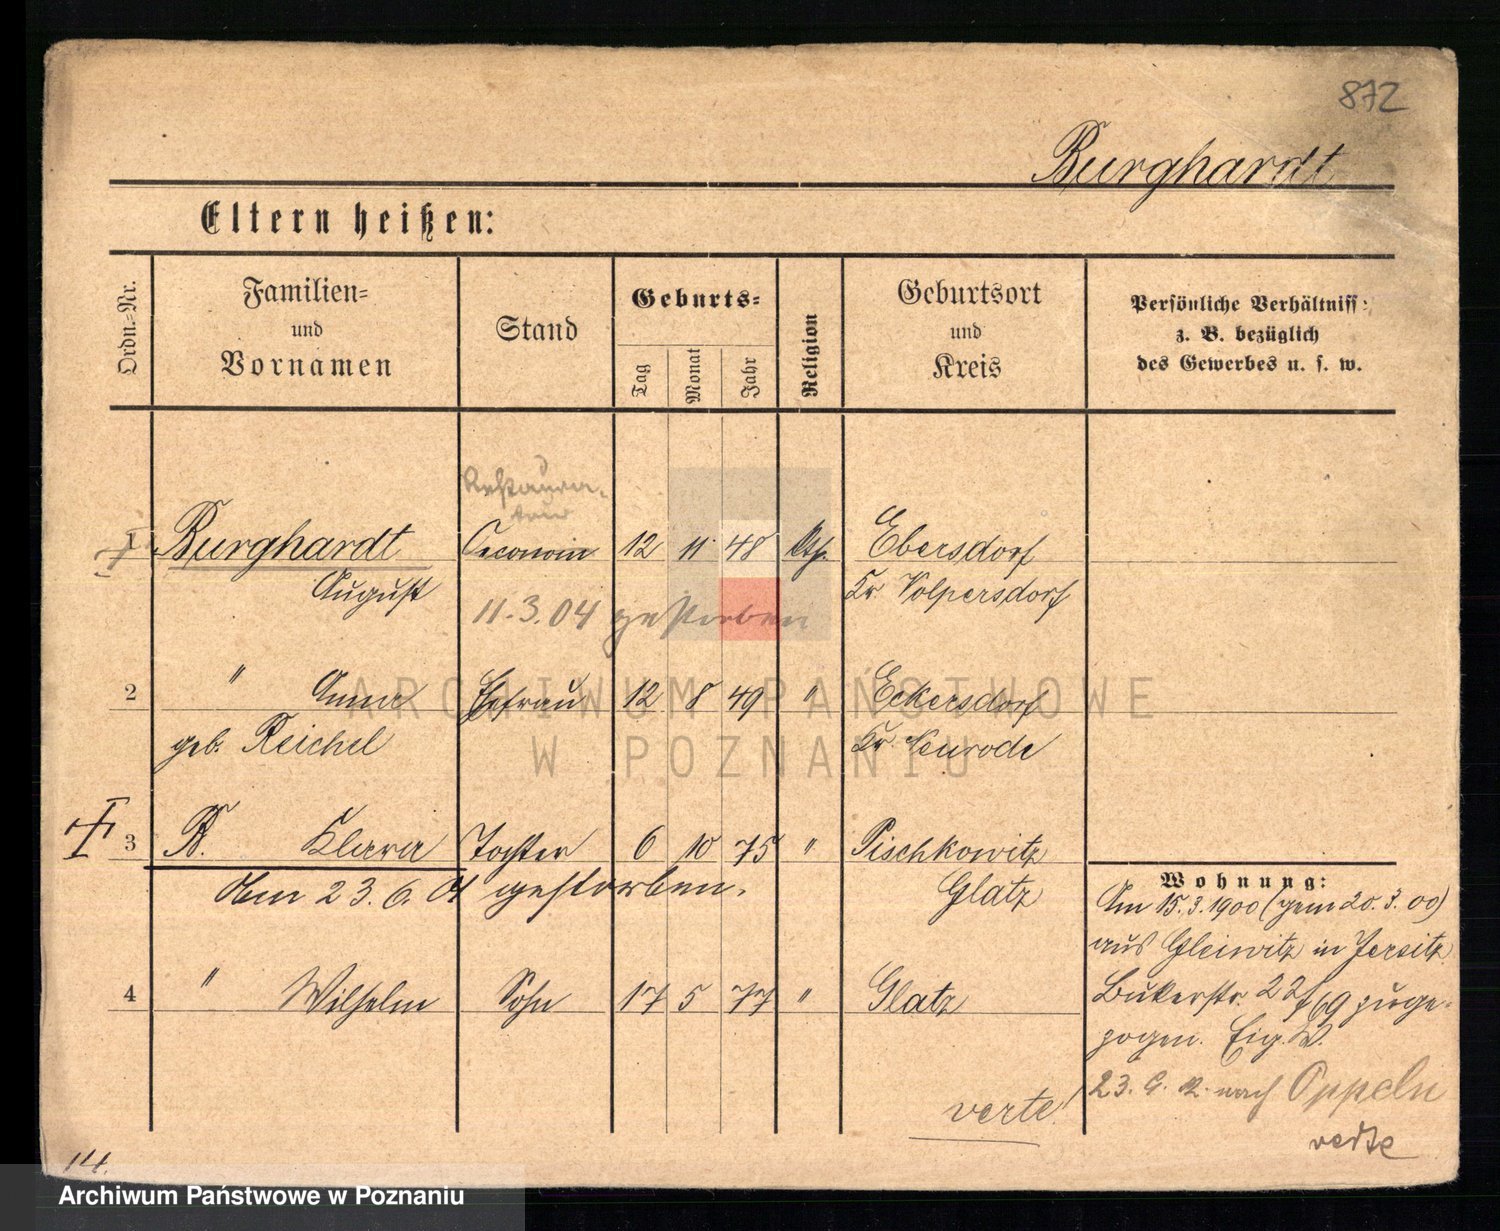 872
Burghardt
Eltern heißen:
Ordn.-Nr.
Familien-
und
Vornamen
Stand
Geburts-
Tag
Monat
Jahr
Religion
Geburtsort
und
Kreis
Persönliche Verhältniss:
z. B. bezüglich
des Gewerbes u. s. w.
Restaura-
teur
1 Burghardt Oeconom 12 11 48 Kth. Ebersdorf
August Kr. Volpersdorf
11.3.04 gestorben
2 " Anna Ehefrau 12 8 49 " Eckersdorf
geb. Reichel Kr. Neurode
3 B. Klara Tochter 6 10 75 " Pischkowitz
Am 23.6. 01 gestorben. Glatz
4 " Wilhelm Sohn 17 5 77 " Glatz
verte!
Wohnung:
Am 15.3.1900 (gem 20.3.00)
aus Gleiwitz in Jersitz
Bukerstr. 22/69 zuge-
zogen. Eig. W.
23. 6. nach Oppeln
verte
14.
ARCHIWUM PAŃSTWOWE
W POZNANIU
Archiwum Państwowe w Poznaniu